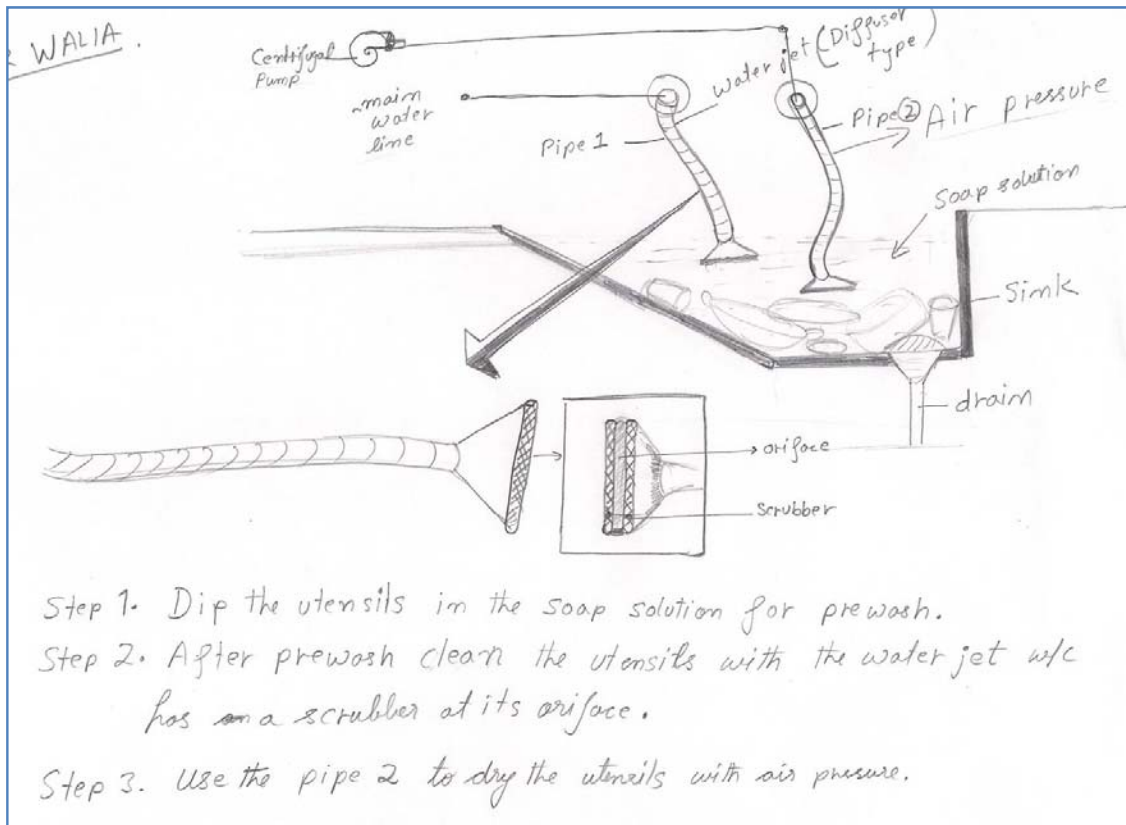 WALIA.
Centrifugal
Pump
main
water
line
Pipe 1
water jet (Diffusor
type)
Pipe ②
Air pressure
Soap solution
Sink
drain
oriface
scrubber
Step 1. Dip the utensils in the soap solution for prewash.
Step 2. After prewash clean the utensils with the water jet w/c
has a scrubber at its oriface.
Step 3. Use the pipe 2 to dry the utensils with air presure.